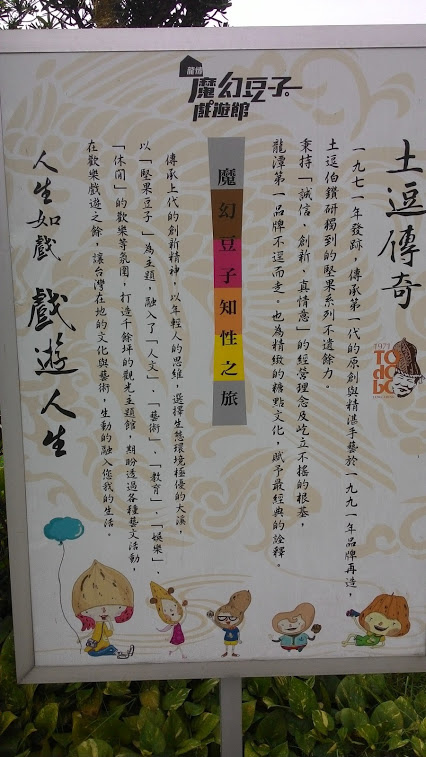 魔幻豆子
戲遊館
土逗傳奇
1971
TO
do
bo
一九七一年發跡，傳承第一代的原創與精湛手藝於一九九一年品牌再造，
土逗伯鑽研獨到的堅果系列不遺餘力。
秉持「誠信、創新、真情意」的經營理念及屹立不搖的根基，
龍潭第一品牌不逕而走。也為精緻的糖點文化，賦予最經典的詮釋。
魔幻豆子知性之旅
傳承上代的創新精神，以年輕人的思維，選擇生態環境極優的大溪，
以「堅果豆子」為主題，融入了「人文」、「藝術」、「教育」、「娛樂」、
「休閒」的歡樂等氛圍，打造千餘坪的觀光主題館，期盼透過各種藝文活動，
在歡樂戲遊之餘，讓台灣在地的文化與藝術，生動的融入您我的生活。
戲遊人生
人生如戲